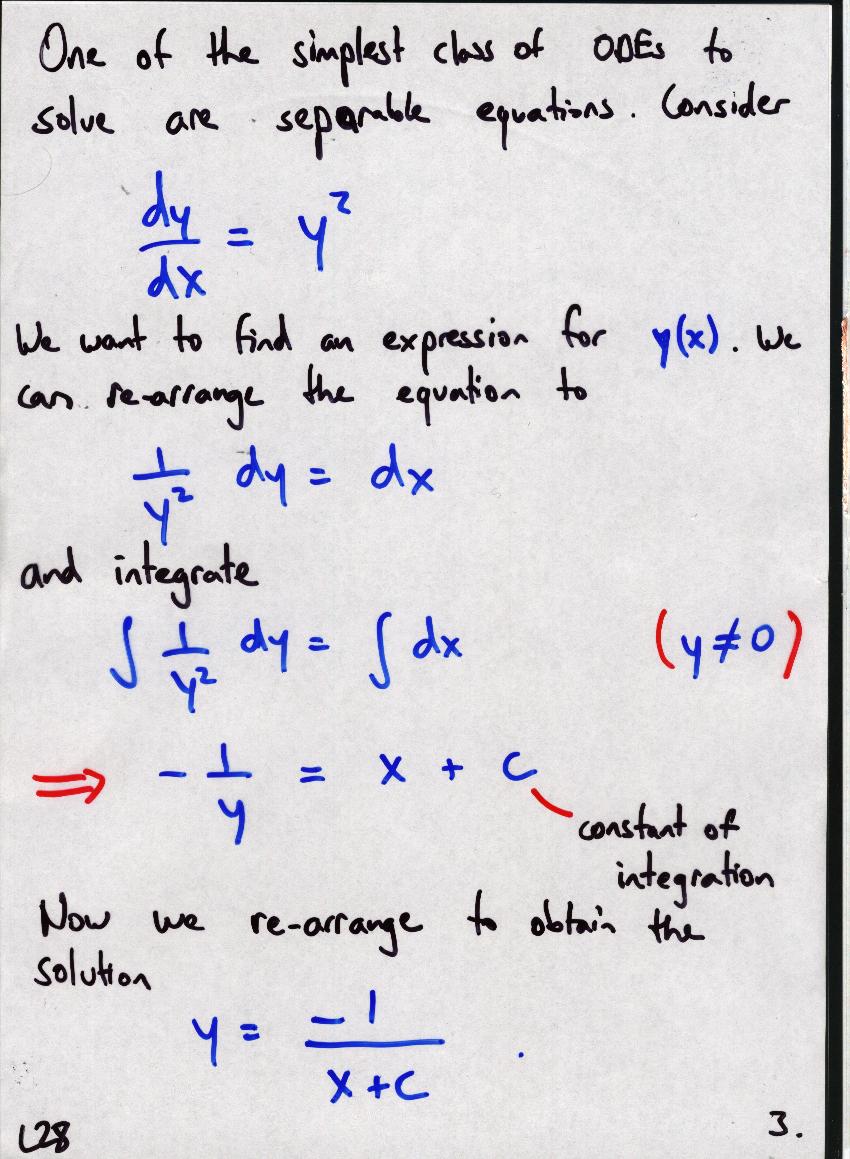 One of the simplest class of ODEs to
solve are separable equations. Consider
dy/dx = y²
We want to find an expression for y(x). We
can re-arrange the equation to
1/y² dy = dx
and integrate
∫ 1/y² dy = ∫ dx (y ≠ 0)
⇒ - 1/y = x + c
constant of
integration
Now we re-arrange to obtain the
solution
y = -1/(x+c) .
L28 3.